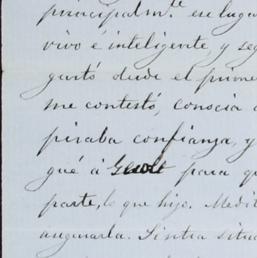 principalmte ese luga
vivo é inteligente, y seg
gustó desde el prime
me contestó, conocia a
piraba confianza, y
gué á Gerolt para qu
parte, lo que hizo. Medit
augurarla. Sintra situa